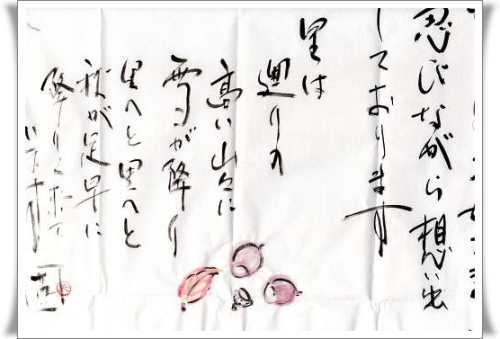 忍びながら想い出
しております
里は
廻りの
高い山々に
雪が降り
里へと里へと
秋が足早に
降りて来て
います